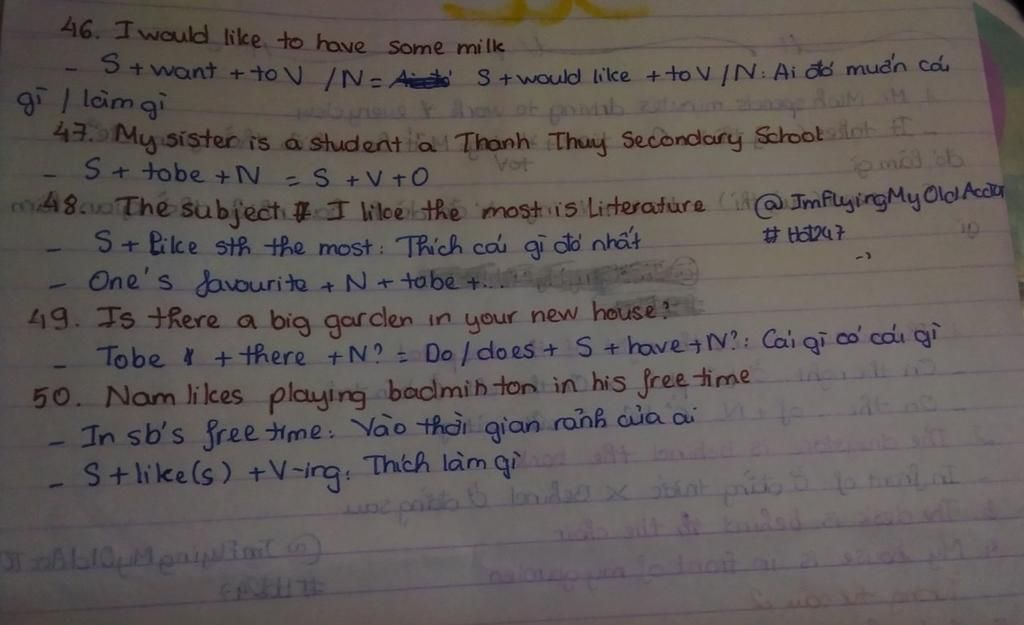 46. I would like to have some milk
- S + want + to V / N = S + would like + to V / N: Ai đó muốn cái
gì / làm gì
47. My sister is a student a Thanh Thuy Secondary School
- S + tobe + N = S + V + O
48. The subject I like the most is Literature
@ImFlyingMyOldAcc
- S + Like sth the most: Thích cái gì đó nhất
- One's favourite + N + tobe +...
49. Is there a big garden in your new house?
- Tobe + there + N? = Do/does + S + have + N?: Cái gì có cái gì
50. Nam likes playing badminton in his free time
- In sb's free time: Vào thời gian rảnh của ai
- S + like(s) + V-ing: Thích làm gì